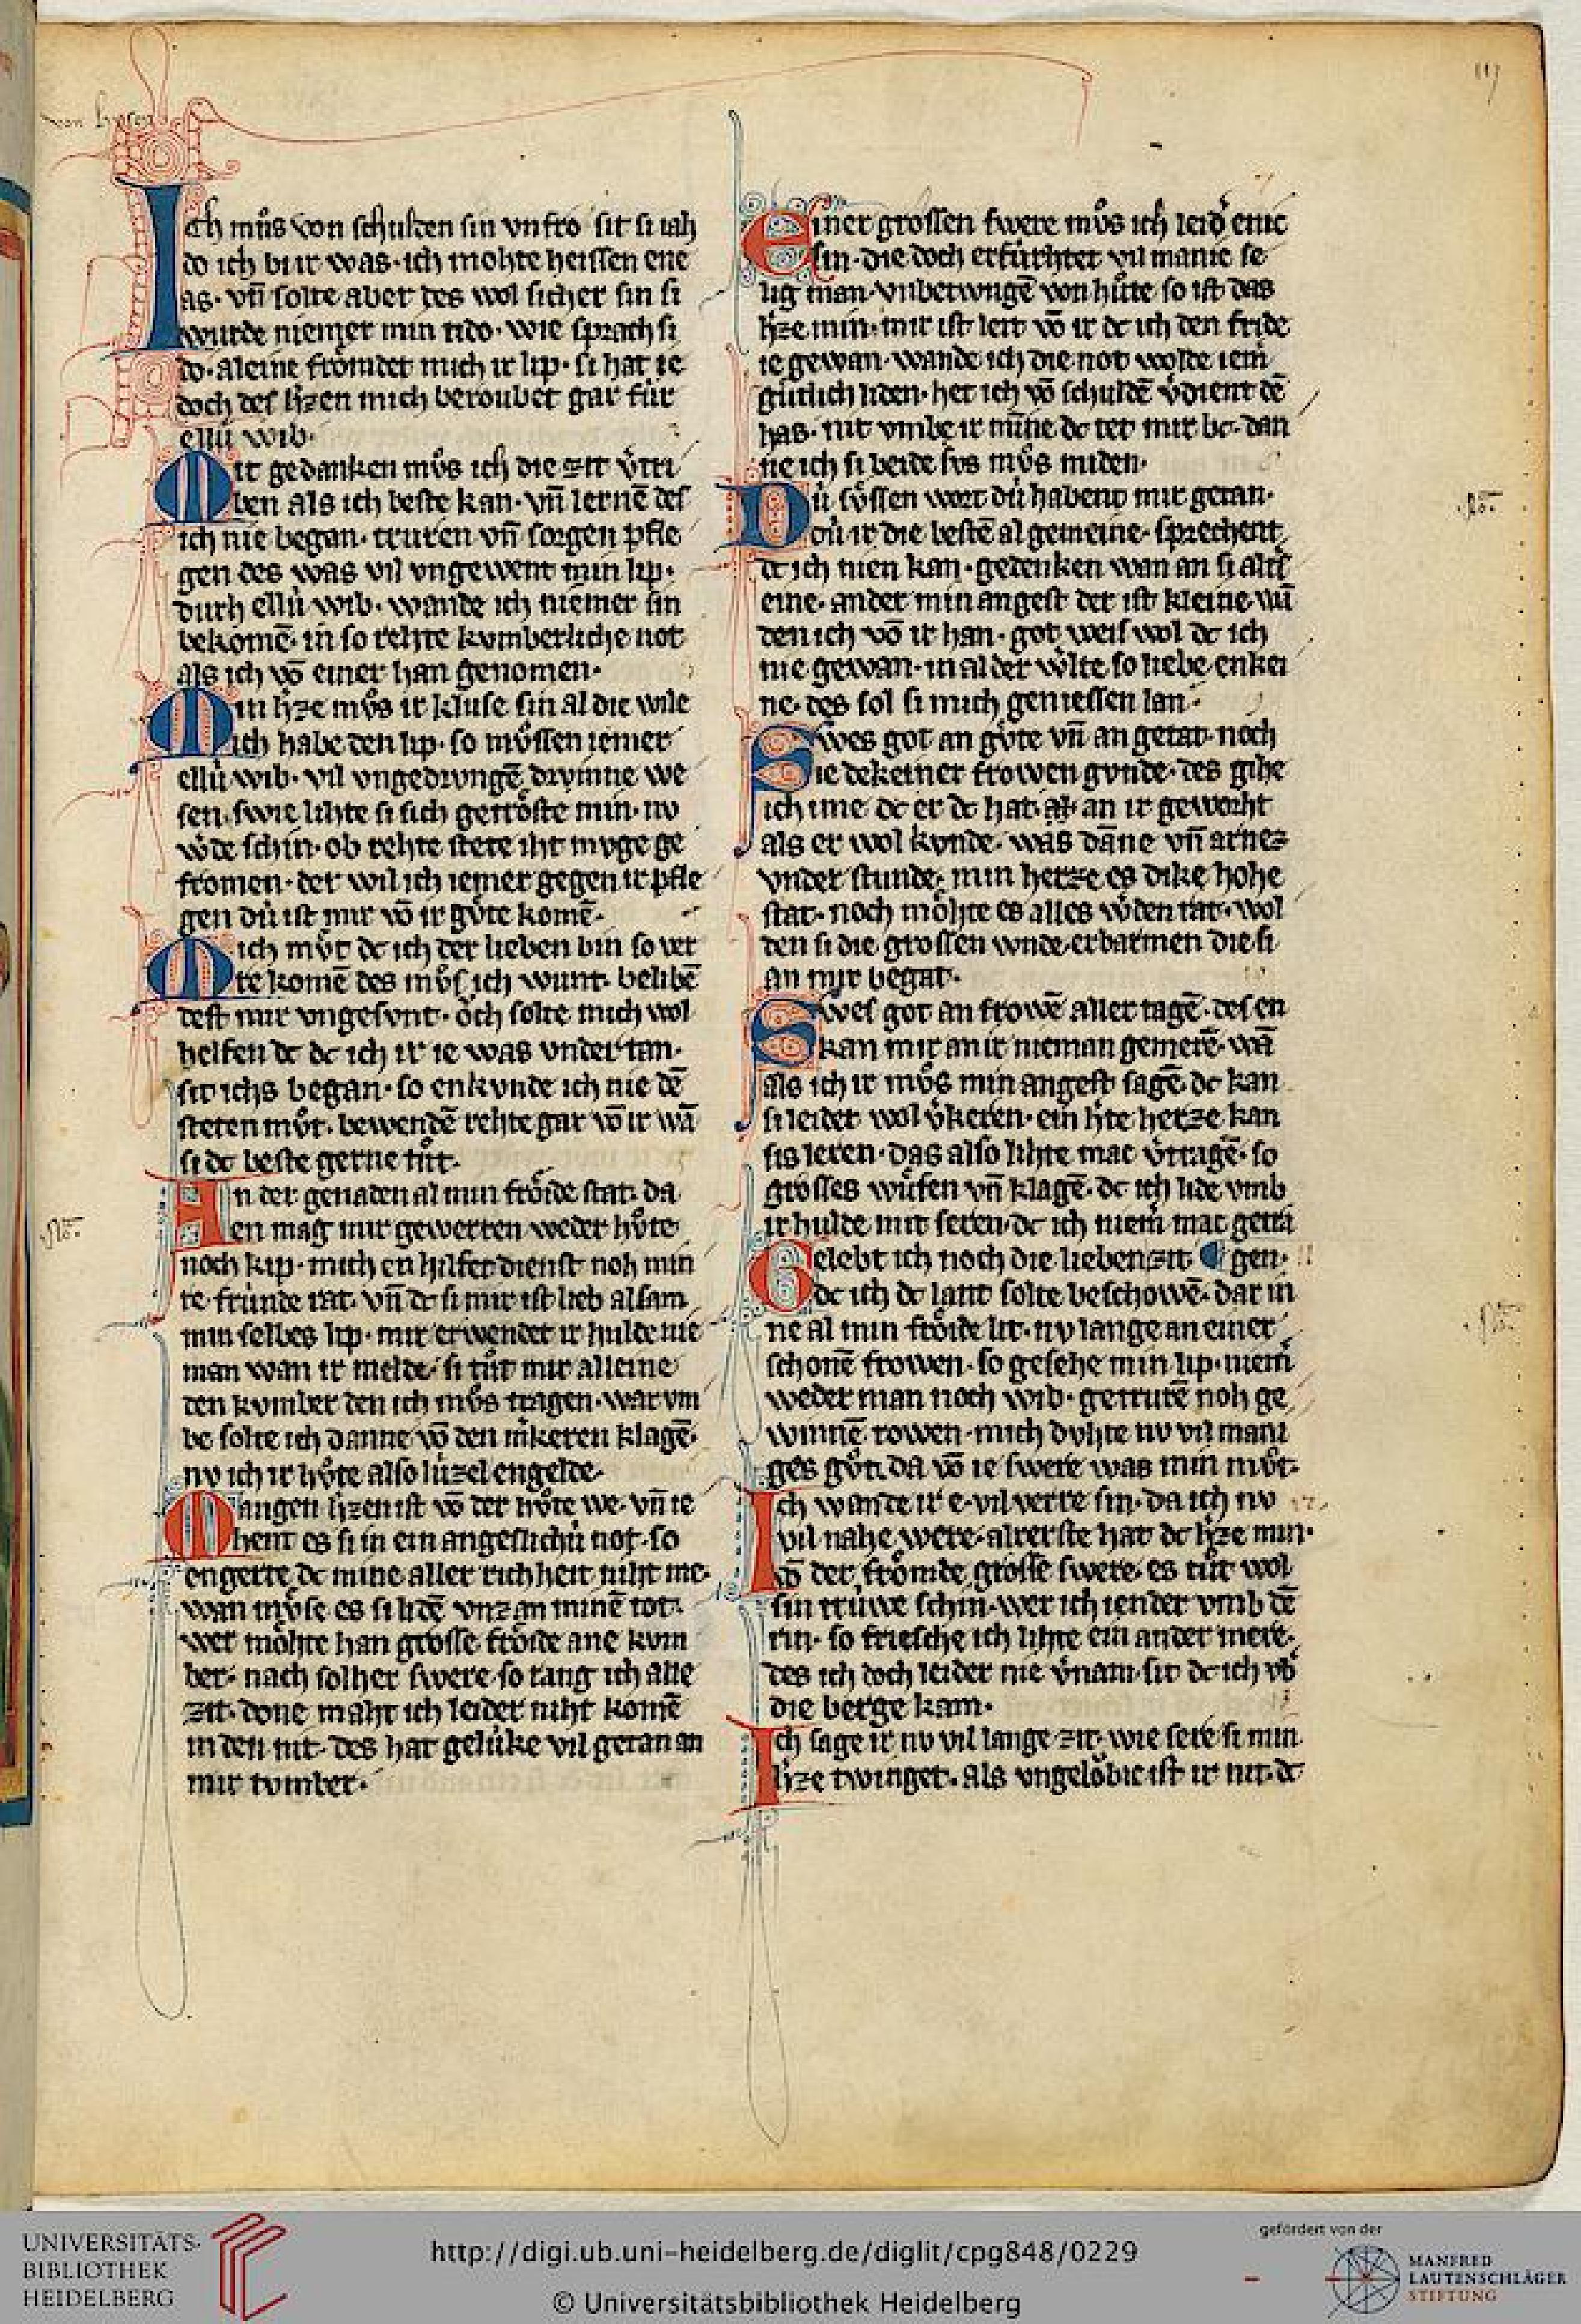 von husen
117
Ich můs von schulden sin vnfro sit si iah
do ich bi ir was· ich mohte heissen ene
as· vñ solte aber des wol sicher sin si
wurde niemer min tido· wie sprach si
do· aleine frömdet mich ir lip· si hat ie
doch des h̾zen mich beroubet gar für
ellú wib·
Mit gedanken můs ich die zit v̾tri
ben als ich beste kan· vñ lernē des
ich nie began· truren vñ sorgen pfle
gen des was vil vngewent min lip·
durh ellú wib· wande ich niemer sin
bekomē· in so rehte kumberliche not
als ich vō einer han genomen·
Min h̾ze můs ir kluse sin al die wile
ich habe den lip· so mûssen iemer
ellú wib· vil vngedrungē drvinne we
sen· swie lihte si sich getröste min· nv
w̾de schin· ob rehte stete iht mvge ge
fromen· der wil ich iemer gegen ir pfle
gen dú ist mir vō ir gûte komē·
Mich můt dc ich der lieben bin so ver
re komē des můs ich wunt· belibē
dest mir vngesvnt· öch solte mich wol
helfen dc dc ich ir ie was vndertan·
sit ichs began· so enkvnde ich nie dē
steten můt· bewendē rehte gar vō ir wā
si dc beste gerne tůt·
An der genaden al min fröide stat· da
en mag mir gewerren weder hůte
noch kip· mich en hilfet dienst noh min
re fründe rat· vñ dc si mir ist lieb alsam
min selbes lip· mir erwendet ir hulde nie
man wan ir melde· si tůt mir alleine
den kvmber den ich můs tragen· war vm
be solte ich danne vō den m̾keren klagē·
nv ich ir hůte also lúzel engelde·
Mangen h̾zen ist vō der hůte we· vñ ie
hent es si in ein angeslichú not· so
engerte dc mine aller richheit niht me·
wan mûse es si lidē vnz an minē tot·
wer möhte han grosse fröide ane kvm
ber· nach solher swere so rang ich alle
zit· done maht ich leider niht komē
in den nit· des hat gelúke vil getan an
mir tvmber·
Einer grossen swere můs ich leid̾ enic
sin· die doch erfúrhtet vil manic se
lig man· vnbetwngē von hůte so ist das
h̾ze min· mir ist leit vō ir dc ich den fride
ie gewan· wande ich die not wolde iem̄
gütlich liden· het ich vō schuldē v̾dient dē
has· nit vmbe ir miñe dc tet mir bc· dan
ne ich si beide svs můs miden·
Dú sûssen wort dú habent mir getan·
dú ir die bestē al gemeine· sprechent
dc ich nien kan· gedenken wan an si alt̾s
eine· ander min angest der ist kleine· wā
den ich vō ir han· got weis wol dc ich
nie gewan· in al der w̾lte so liebe enkei
ne· des sol si mich geniessen lan·
Swes got an gûte vñ an getat· noch
ie dekeiner frowen gvnde· des gihe
ich ime dc er dc hat· an ir geworht
als er wol kvnde· was dāne vñ arnez
vnder stunde· min herze es dike hohe
stat· noch möhte es alles w̾den rat· wol
den si die grossen wnde erbarmen die si
an mir begat·
Swes got an frowē aller tagē· des en
kan mir an ir nieman gemerē· wā
als ich ir můs min angest sagē dc kan
si leider wol v̾keren· ein h̾te herze kan
sis leren· das also lihte mac v̾tragē· so
grosses wûfen vñ klagē· dc ich lide vmb
ir hulde mit seren· dc ich niem̄ mac getra
Gelebt ich noch die lieben zit ¶ gen·
dc ich dc lant solte beschowē· dar in
ne al min fröide lit· nv lange an einer
schonē frowen· so gesehe min lip· niem̄
weder man noch wib· getrurē noh ge
winnē rowen· mich dvhte nv vil mani
ges gůt· da vō ie swere was min můt·
Ich wande ir e· vil verre sin· da ich nv
vil nahe were· alrerste hat dc h̾ze min·
vō der frömde grosse swere· es tůt wol
sin trúwe schin· wer ich iender vmb dē
rin· so friesche ich lihte ein ander mere·
des ich doch leider nie v̾nam· sit dc ich vb̾
die berge kam·
Ich sage ir nv vil lange zit· wie sere si min
h̾ze twinget· als vngelöbic ist ir nit· dc
UNIVERSITÄTS-
BIBLIOTHEK
HEIDELBERG
http://digi.ub.uni-heidelberg.de/diglit/cpg848/0229
© Universitätsbibliothek Heidelberg
gefördert von der
MANFRED
LAUTENSCHLÄGER
STIFTUNG